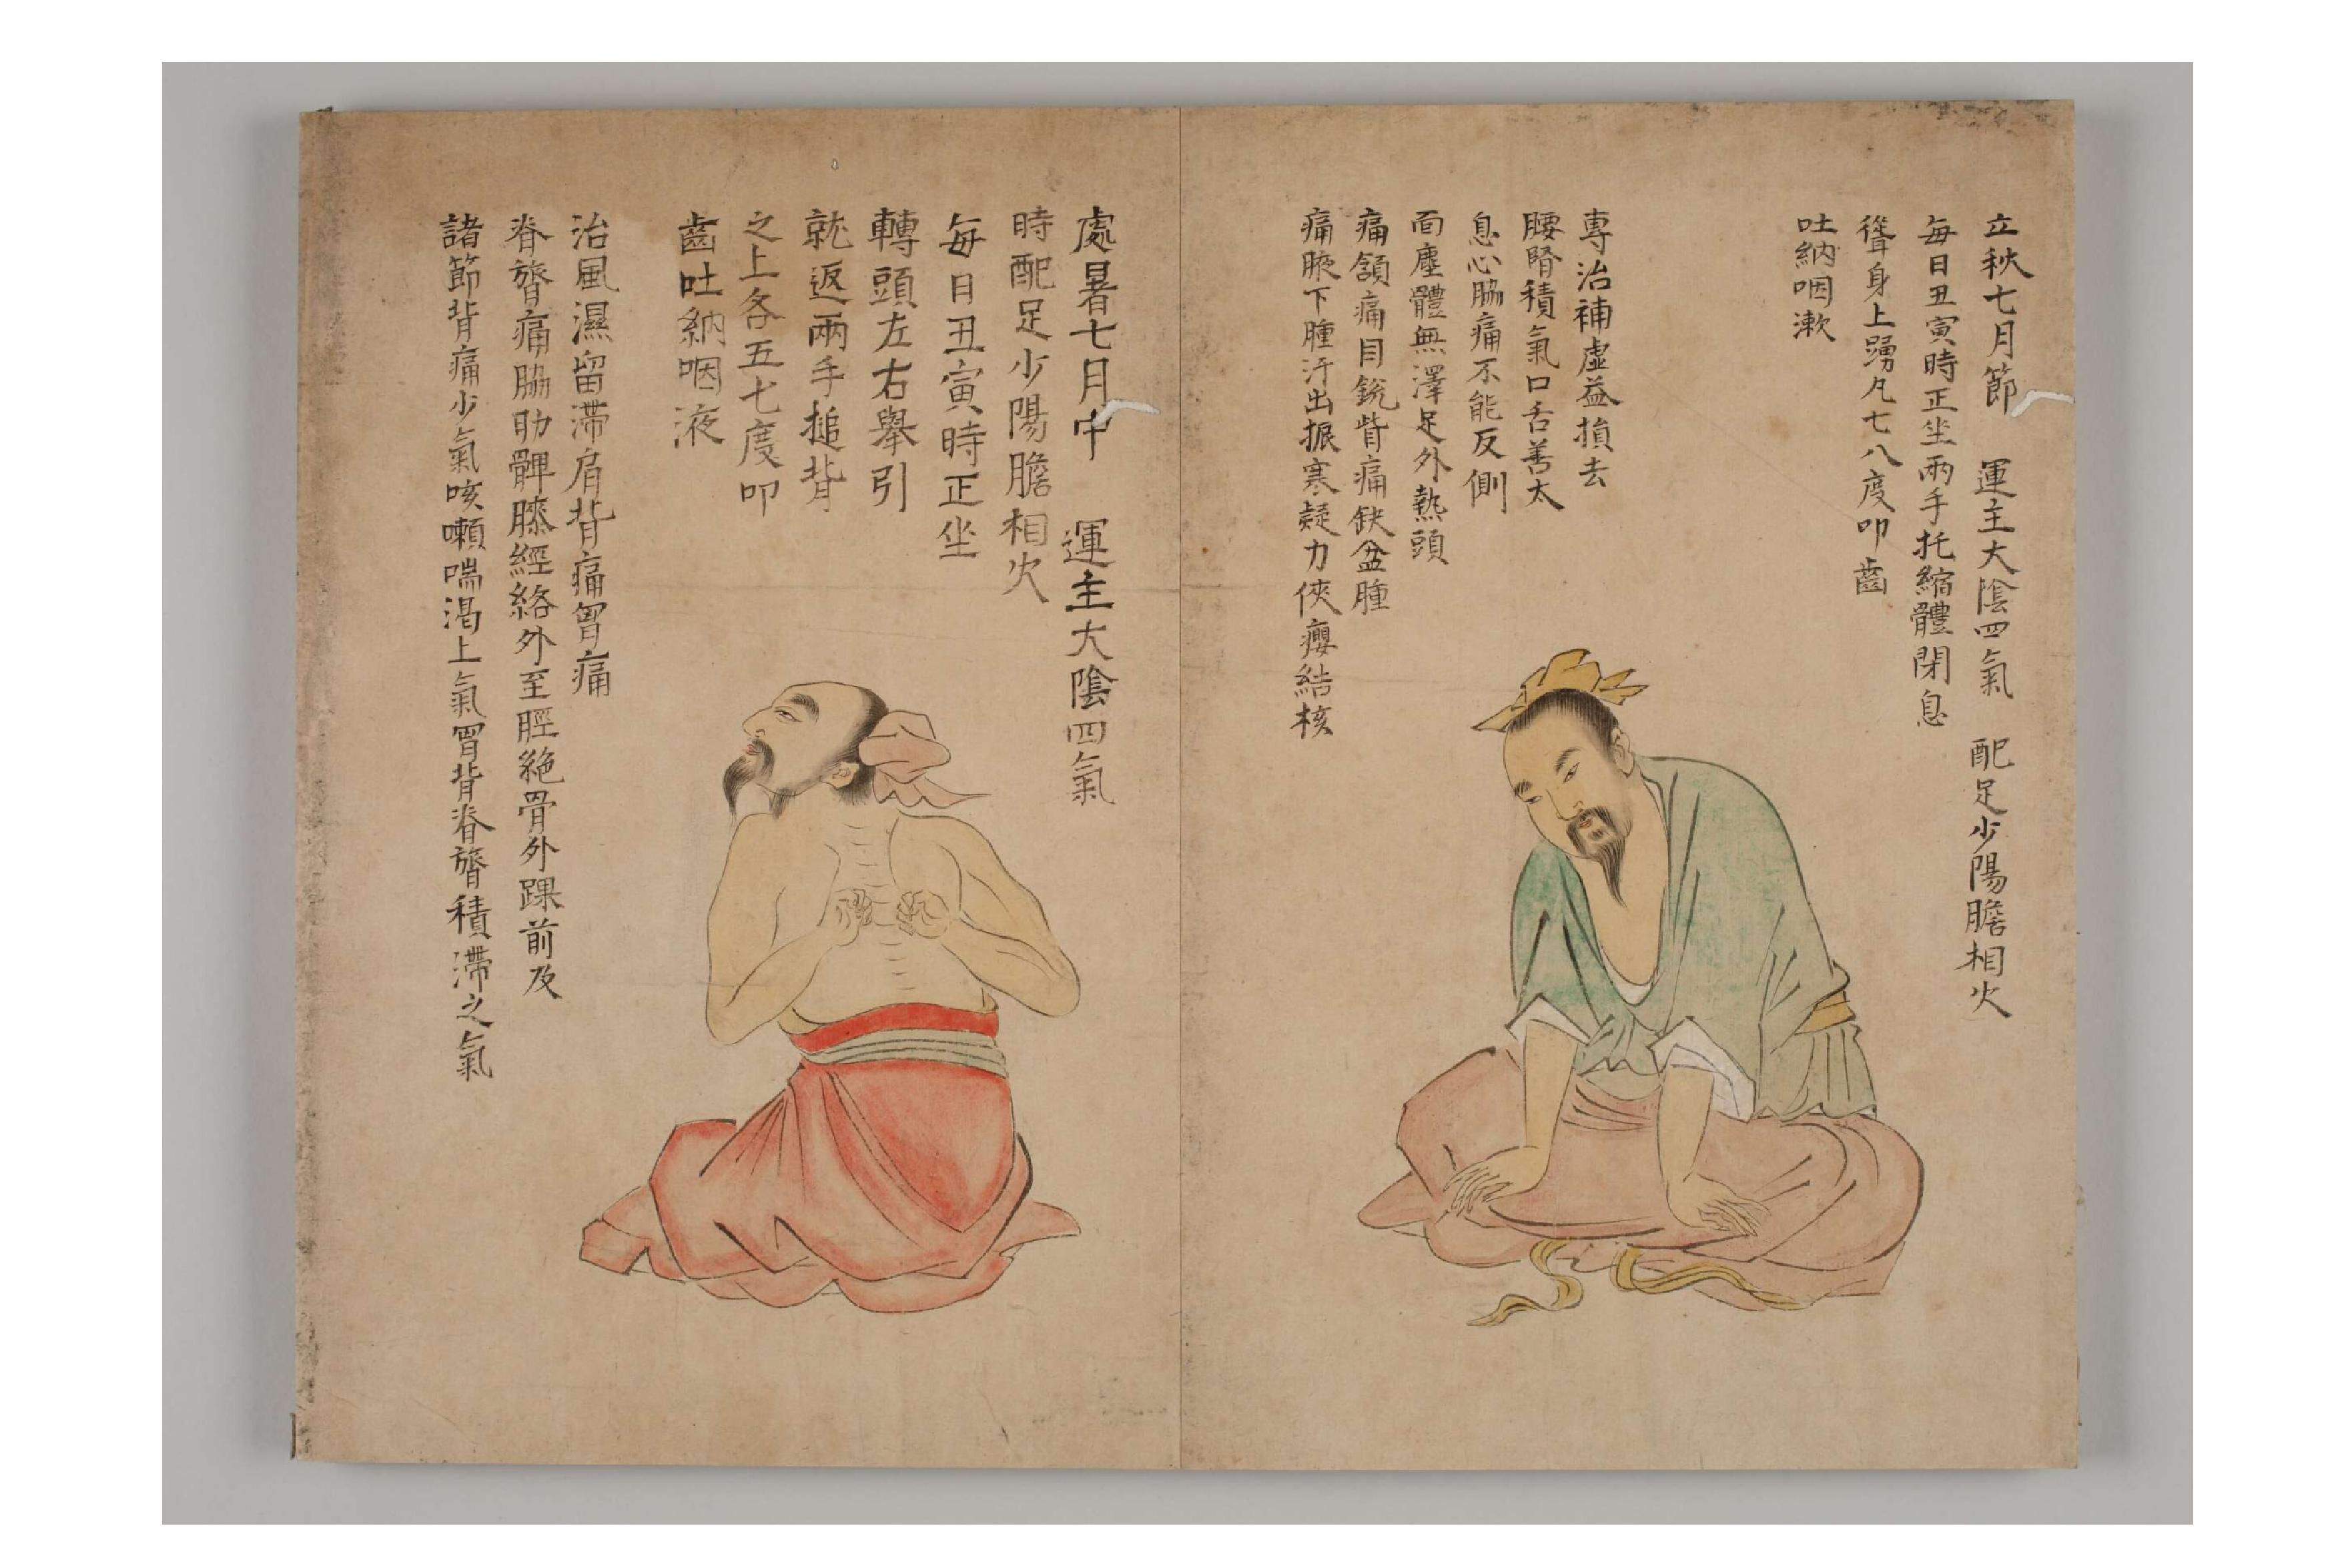 立秋七月節 運主大陰四氣 配足少陽膽相火
每日丑寅時正坐兩手托縮體閉息
聳身上踴凡七八度叩齒
吐納咽漱
專治補虛益損去
腰腎積氣口舌善太
息心脇痛不能反側
面塵體無澤足外熱頭
痛頷痛目銳眥痛缺盆腫
痛腋下腫汗出振寒疑力俠癭結核
處暑七月中 運主大陰四氣
時配足少陽膽相火
每日丑寅時正坐
轉頭左右舉引
就返兩手搥背
之上各五七度叩
齒吐納咽液
治風濕留滯肩背痛胷痛
脊膂痛脇肋髀膝經絡外至脛絕骨外踝前及
諸節背痛少氣咳嗽喘渴上氣胷背脊膂積滯之氣